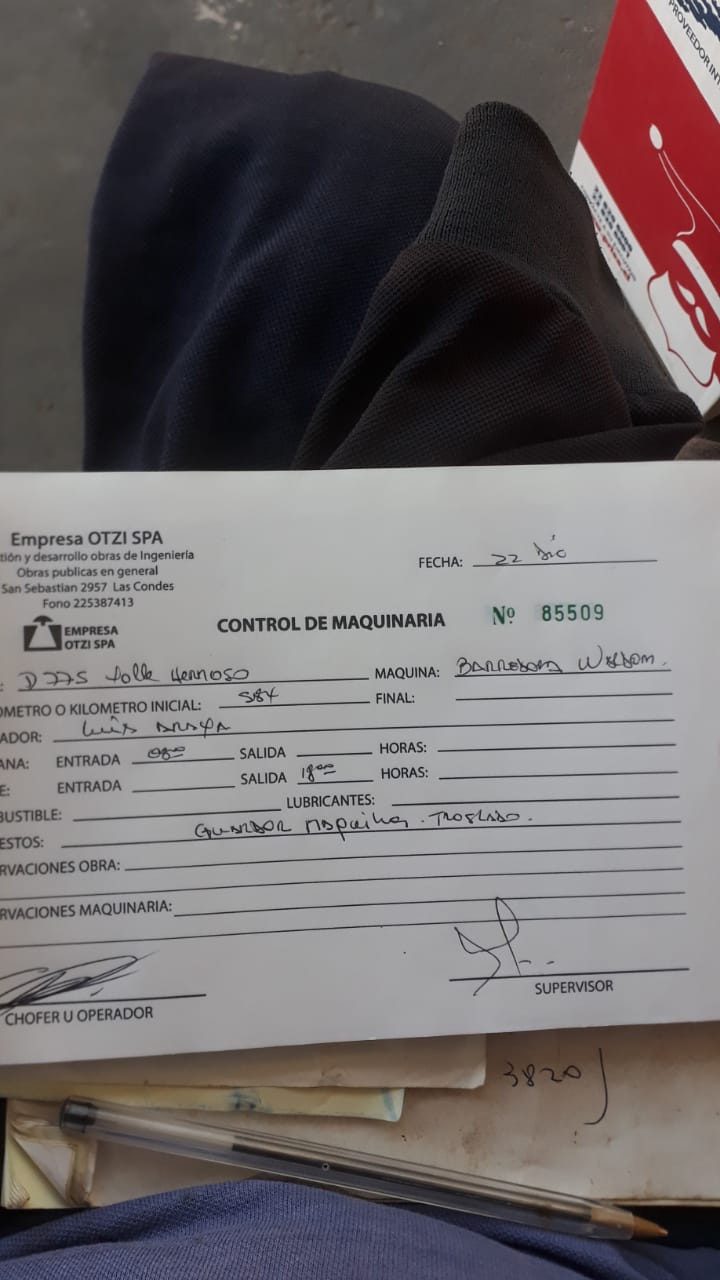 PROVEEDOR INT
Empresa OTZI SPA
tión y desarrollo obras de Ingeniería
Obras publicas en general
San Sebastian 2957 Las Condes
Fono 225387413
EMPRESA
OTZI SPA
FECHA: 22 Dic
CONTROL DE MAQUINARIA Nº 85509
: D775 Valle Hermoso MAQUINA: BARREDORA
OMETRO O KILOMETRO INICIAL: 584 FINAL:
ADOR: Luis ARAYA
ANA: ENTRADA 08:00 SALIDA HORAS:
E: ENTRADA SALIDA 18:00 HORAS:
BUSTIBLE: LUBRICANTES:
ESTOS: GUARDAR MAQUINA. TRASLADO.
RVACIONES OBRA:
RVACIONES MAQUINARIA:
CHOFER U OPERADOR SUPERVISOR
3820